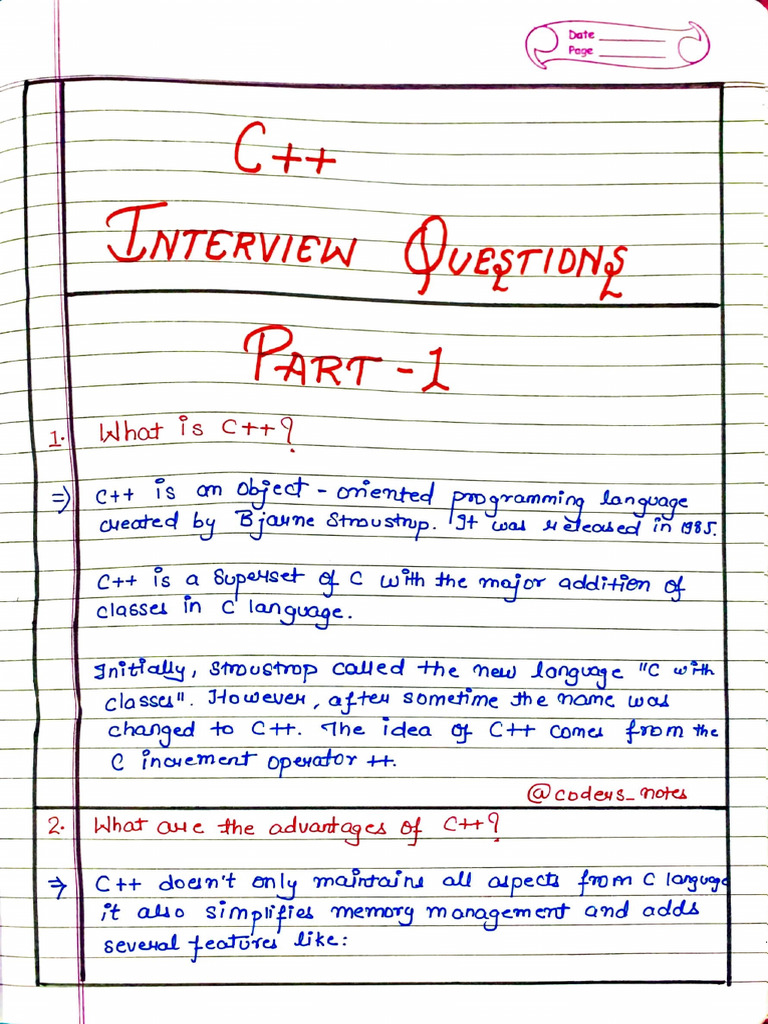 Date
Page
C++
INTERVIEW QUESTIONS
PART - 1
1. What is C++?
⇒ C++ is an object - oriented programming language
created by Bjarne Stroustrup. It was released in 1985.
C++ is a superset of C with the major addition of
classes in C language.
Initially, Stroustrop called the new language "C with
classes". However, after sometime the name was
changed to C++. The idea of C++ comes from the
C increment operator ++.
@coders_notes
2. What are the advantages of C++?
⇒ C++ doesn't only maintains all aspects from C language
it also simplifies memory management and adds
several features like: